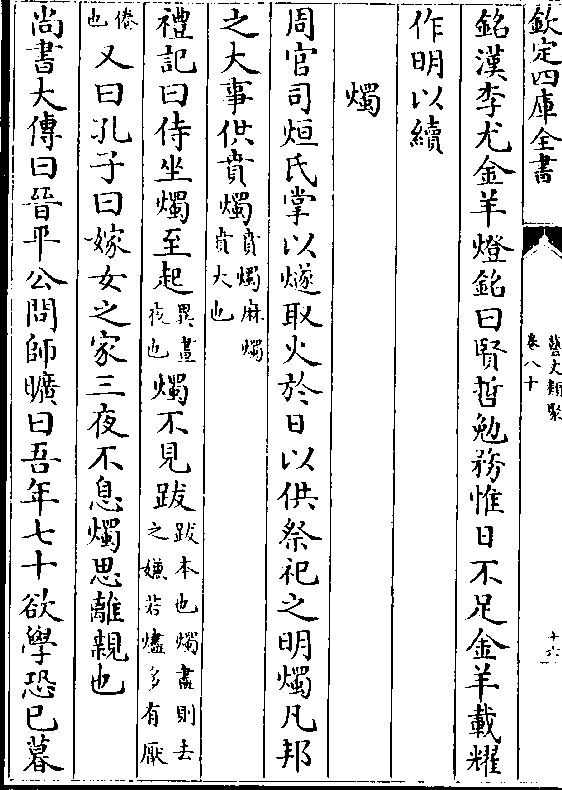 欽定四庫全書
藝文類聚
卷八十
十六
銘漢李尤金羊燈銘曰賢哲勉務惟日不足金羊載耀
作明以續
燭
周官司烜氏掌以燧取火於日以供祭祀之明燭凡邦
之大事供賁燭賁燭麻燭賁大也
禮記曰侍坐燭至起異晝夜也燭不見跋跋本也燭盡則去之嫌若燼多有厭
倦也又曰孔子曰嫁女之家三夜不息燭思離親也
尚書大傳曰晉平公問師曠曰吾年七十欲學恐已暮